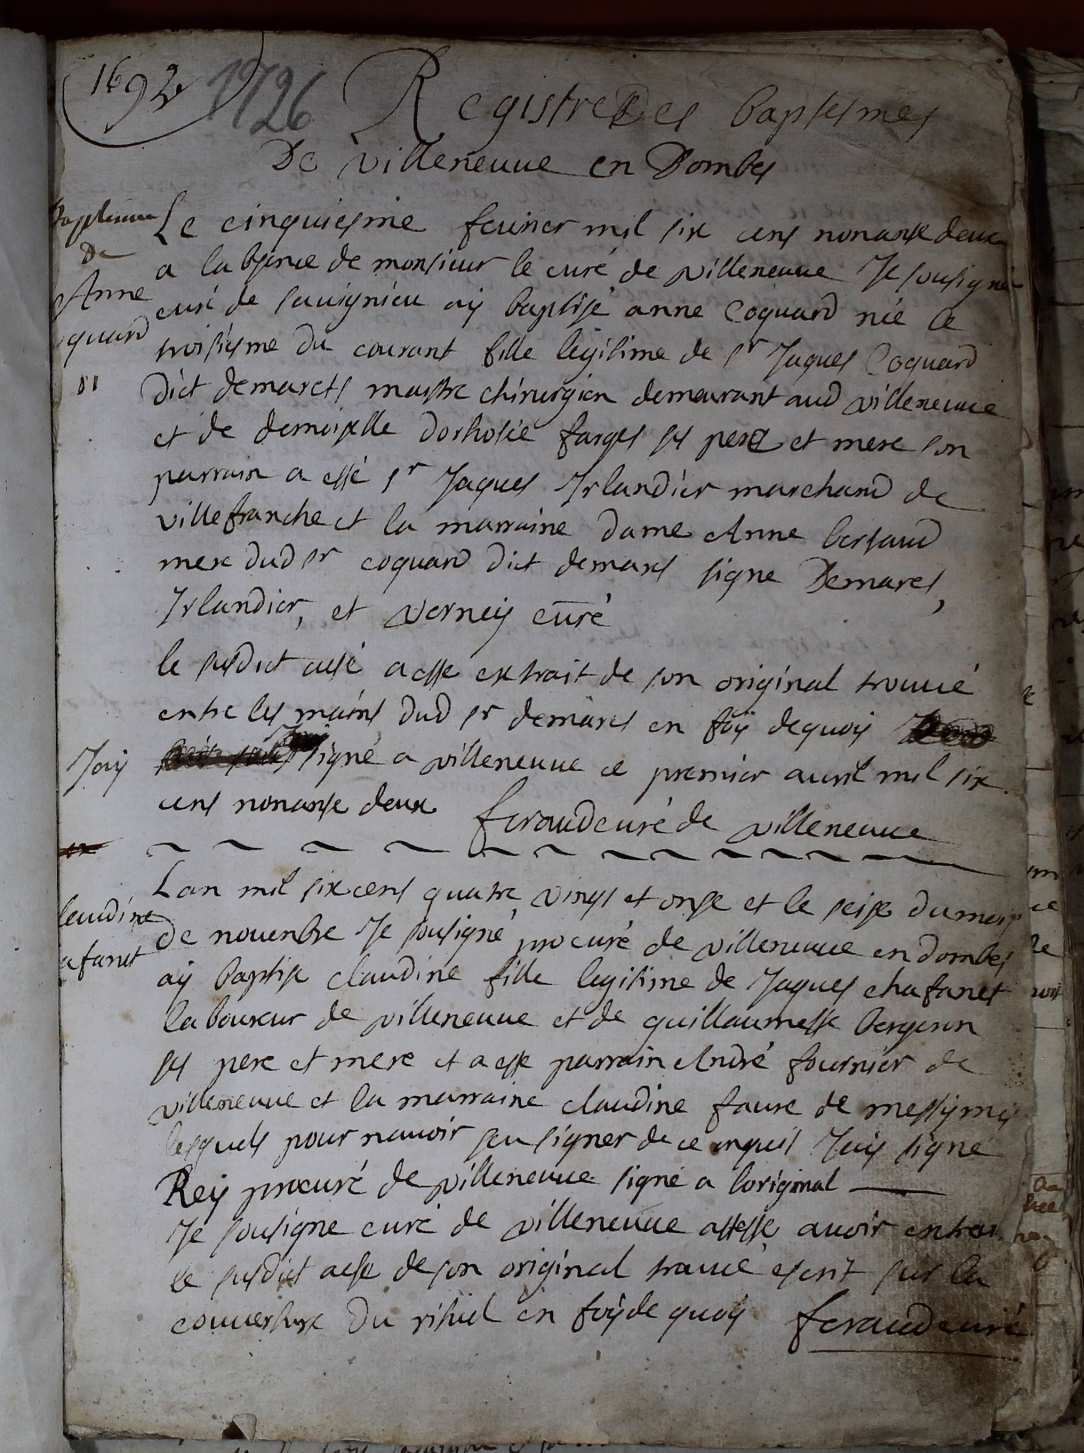 1692
1726
Registre Des baptesmes
De villeneuue en Dombes
Baptesme
De
Anne
quard
Le cinquiesme feurier mil six cens nonante deux
a labsence de monsieur le curé de villeneuue Je sousigné
curé de sauignieu ay baptisé anne Coquard née le
troisiesme du courant fille legitime de sr Jaques Coquard
Dict demarets maistre chirurgien demeurant aud villeneuue
et de demoiselle dorhotée farges ses pere et mere son
parrain a esté sr Jaques Irlandier marchand de
villefranche et la marraine dame Anne bertaud
mere dud sr coquard dict demares signe Demares,
Irlandier, et verney curé
le susdict acte a esté extrait de son original trouué
entre les mains dud sr demares en foy dequoy
Jay signé a villeneuue ce premier auril mil six
cens nonante deux feraud curé de villeneuue
laudine
afanet
Lan mil six cens quatre vingt et onze et le seize du mois
de nouenbre Je sousigné procuré de villeneuue en dombes
ay baptise claudine fille legitime de Jaques chafanet
laboureur de villeneuue et de guillaumette bergeron
ses pere et mere et a esté parrain André fournier de
villeneuue et la marraine claudine faure de messymy
lesquels pour nauoir seu signer de ce enquis Jay signé
Rey procuré de villeneuue signé a loriginal
Je sousigné curé de villeneuue atteste auoir extrai
le susdict acte de son original trouué escrit sur la
couuerture du rituel en foy de quoy feraud curé